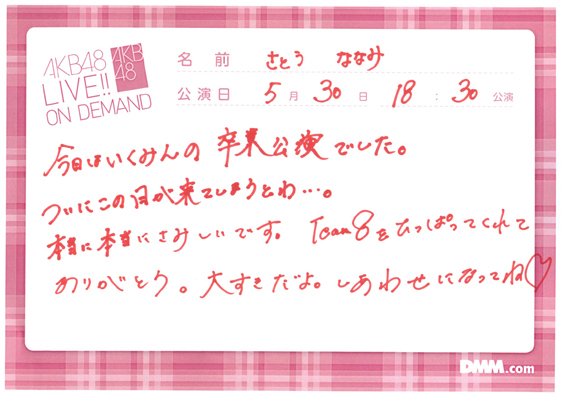 AKB48
LIVE!!
ON DEMAND
AKB
48
名前 さとう ななみ
公演日 5月30日 18:30公演
今日はいくみんの卒業公演でした。
ついにこの日が来てしまうとわ…。
本当に本当にさみしいです。Team8をひっぱってくれて
ありがとう。大すきだよ。しあわせになってね♡
DMM.com